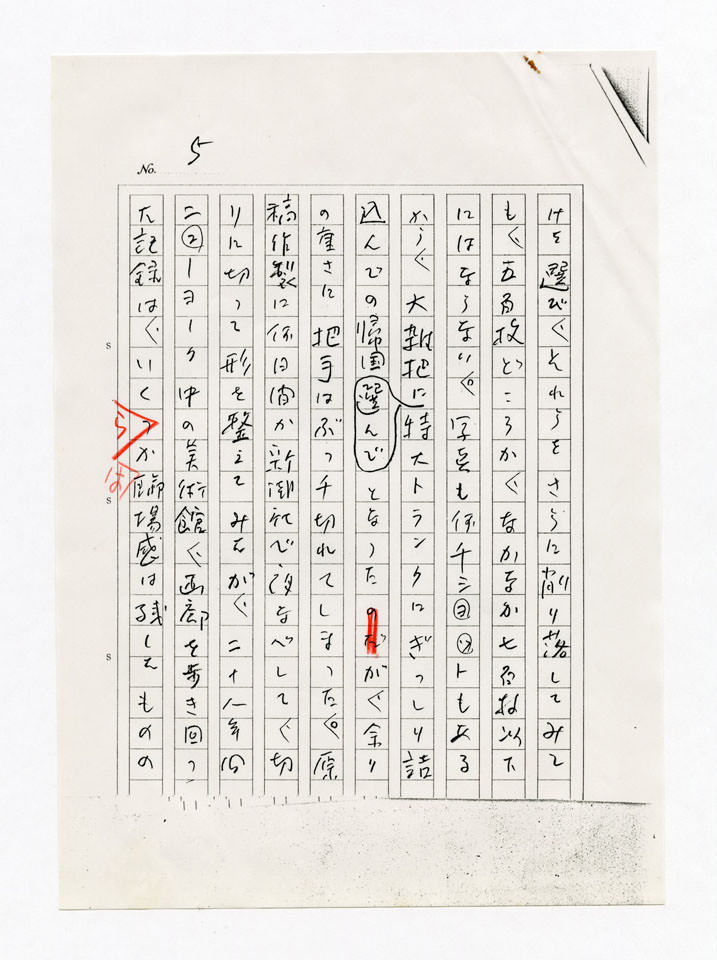 No. 5
けを選び、それらをさらに削り落してみて
も、五百枚どころか、なかなか七百枚以下
にはならない。写真も何千ショットもある
から、大雑把に特大トランクにぎっしり詰
込んでの帰国選んでとなったのだが、余り
の重さに把手はぶっ千切れてしまった。原
稿作製に何日間か新潮社で夜なべして、切
りに切って形を整えてみたが、二十八年間
ニューヨーク中の美術館、画廊を歩き回っ
た記録は、いくつか臨場感は残したものの
らは
S
S
S